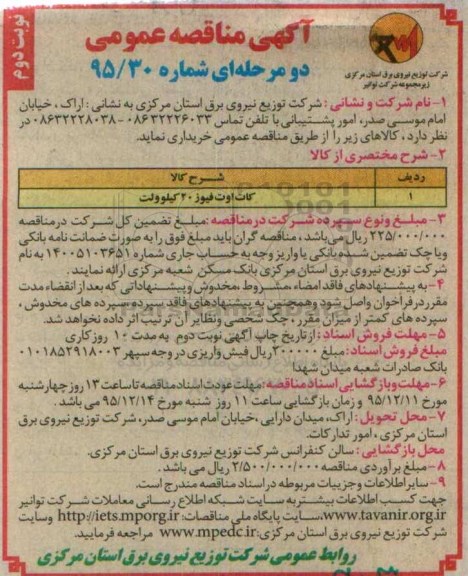 نوبت دوم
آگهی مناقصه عمومی
دو مرحله‌ای شماره ۹۵/۳۰
شرکت توزیع نیروی برق استان مرکزی
زیرمجموعه شرکت توانیر
۱- نام شرکت و نشانی : شرکت توزیع نیروی برق استان مرکزی به نشانی : اراک ، خیابان
امام موسی صدر، امور پشتیبانی با تلفن تماس ۰۸۶۳۲۲۲۶۰۳۳ - ۰۸۶۳۲۲۲۸۰۳۸ در
نظر دارد ، کالاهای زیر را از طریق مناقصه عمومی خریداری نماید.
۲- شرح مختصری از کالا
ردیف شرح کالا
۱ کات اوت فیوز ۲۰ کیلوولت
۳- مبلغ ونوع سپرده شرکت در مناقصه :مبلغ تضمین کل شرکت در مناقصه
۲۲۵/۰۰۰/۰۰۰ ریال می‌باشد ، مناقصه گران باید مبلغ فوق را به صورت ضمانت نامه بانکی
ویا چک تضمین شده بانکی یا واریز وجه به حساب جاری شماره ۱۴۰۰۵۱۰۳۶۵۱ به نام
شرکت توزیع نیروی برق استان مرکزی بانک مسکن شعبه مرکزی ارائه نمایند.
۴- به پیشنهادهای فاقد امضاء ،مشروط ،مخدوش وپیشنهاداتی که بعد از انقضاء مدت
مقرر در فراخوان واصل شود وهمچنین به پیشنهادهای فاقد سپرده ،سپرده های مخدوش ،
سپرده های کمتر از میزان مقرر ، چک شخصی ونظایر آن ترتیب اثر داده نخواهد شد.
۵- مهلت فروش اسناد : از تاریخ چاپ آگهی نوبت دوم به مدت ۱۰ روز کاری
مبلغ فروش اسناد: مبلغ ۲۰۰۰۰۰ ریال فیش واریزی در وجه سپهر ۰۱۰۱۸۵۲۹۱۸۰۰۳
بانک صادرات شعبه میدان شهدا
۶- مهلت وبازگشایی اسناد مناقصه :مهلت عودت اسناد مناقصه تا ساعت ۱۳ روز چهارشنبه
مورخ ۹۵/۱۲/۱۱ و زمان بازگشایی ساعت ۱۱ روز شنبه مورخ ۹۵/۱۲/۱۴ می باشد .
۷- محل تحویل : اراک، میدان دارایی ،خیابان امام موسی صدر، شرکت توزیع نیروی برق
استان مرکزی ، امور تدارکات.
محل بازگشایی : سالن کنفرانس شرکت توزیع نیروی برق استان مرکزی.
۸- مبلغ برآوردی مناقصه ۲/۵۰۰/۰۰۰/۰۰۰ ریال می باشد .
۹- سایر اطلاعات وجزییات مربوطه در اسناد مناقصه مندرج است.
جهت کسب اطلاعات بیشتر به سایت شبکه اطلاع رسانی معاملات شرکت توانیر
www.tavanir.org.ir،سایت پایگاه ملی مناقصات: http://iets.mporg.ir وسایت
شرکت توزیع نیروی برق استان مرکزی: www.mpedc.ir مراجعه فرمایید.
روابط عمومی شرکت توزیع نیروی برق استان مرکزی